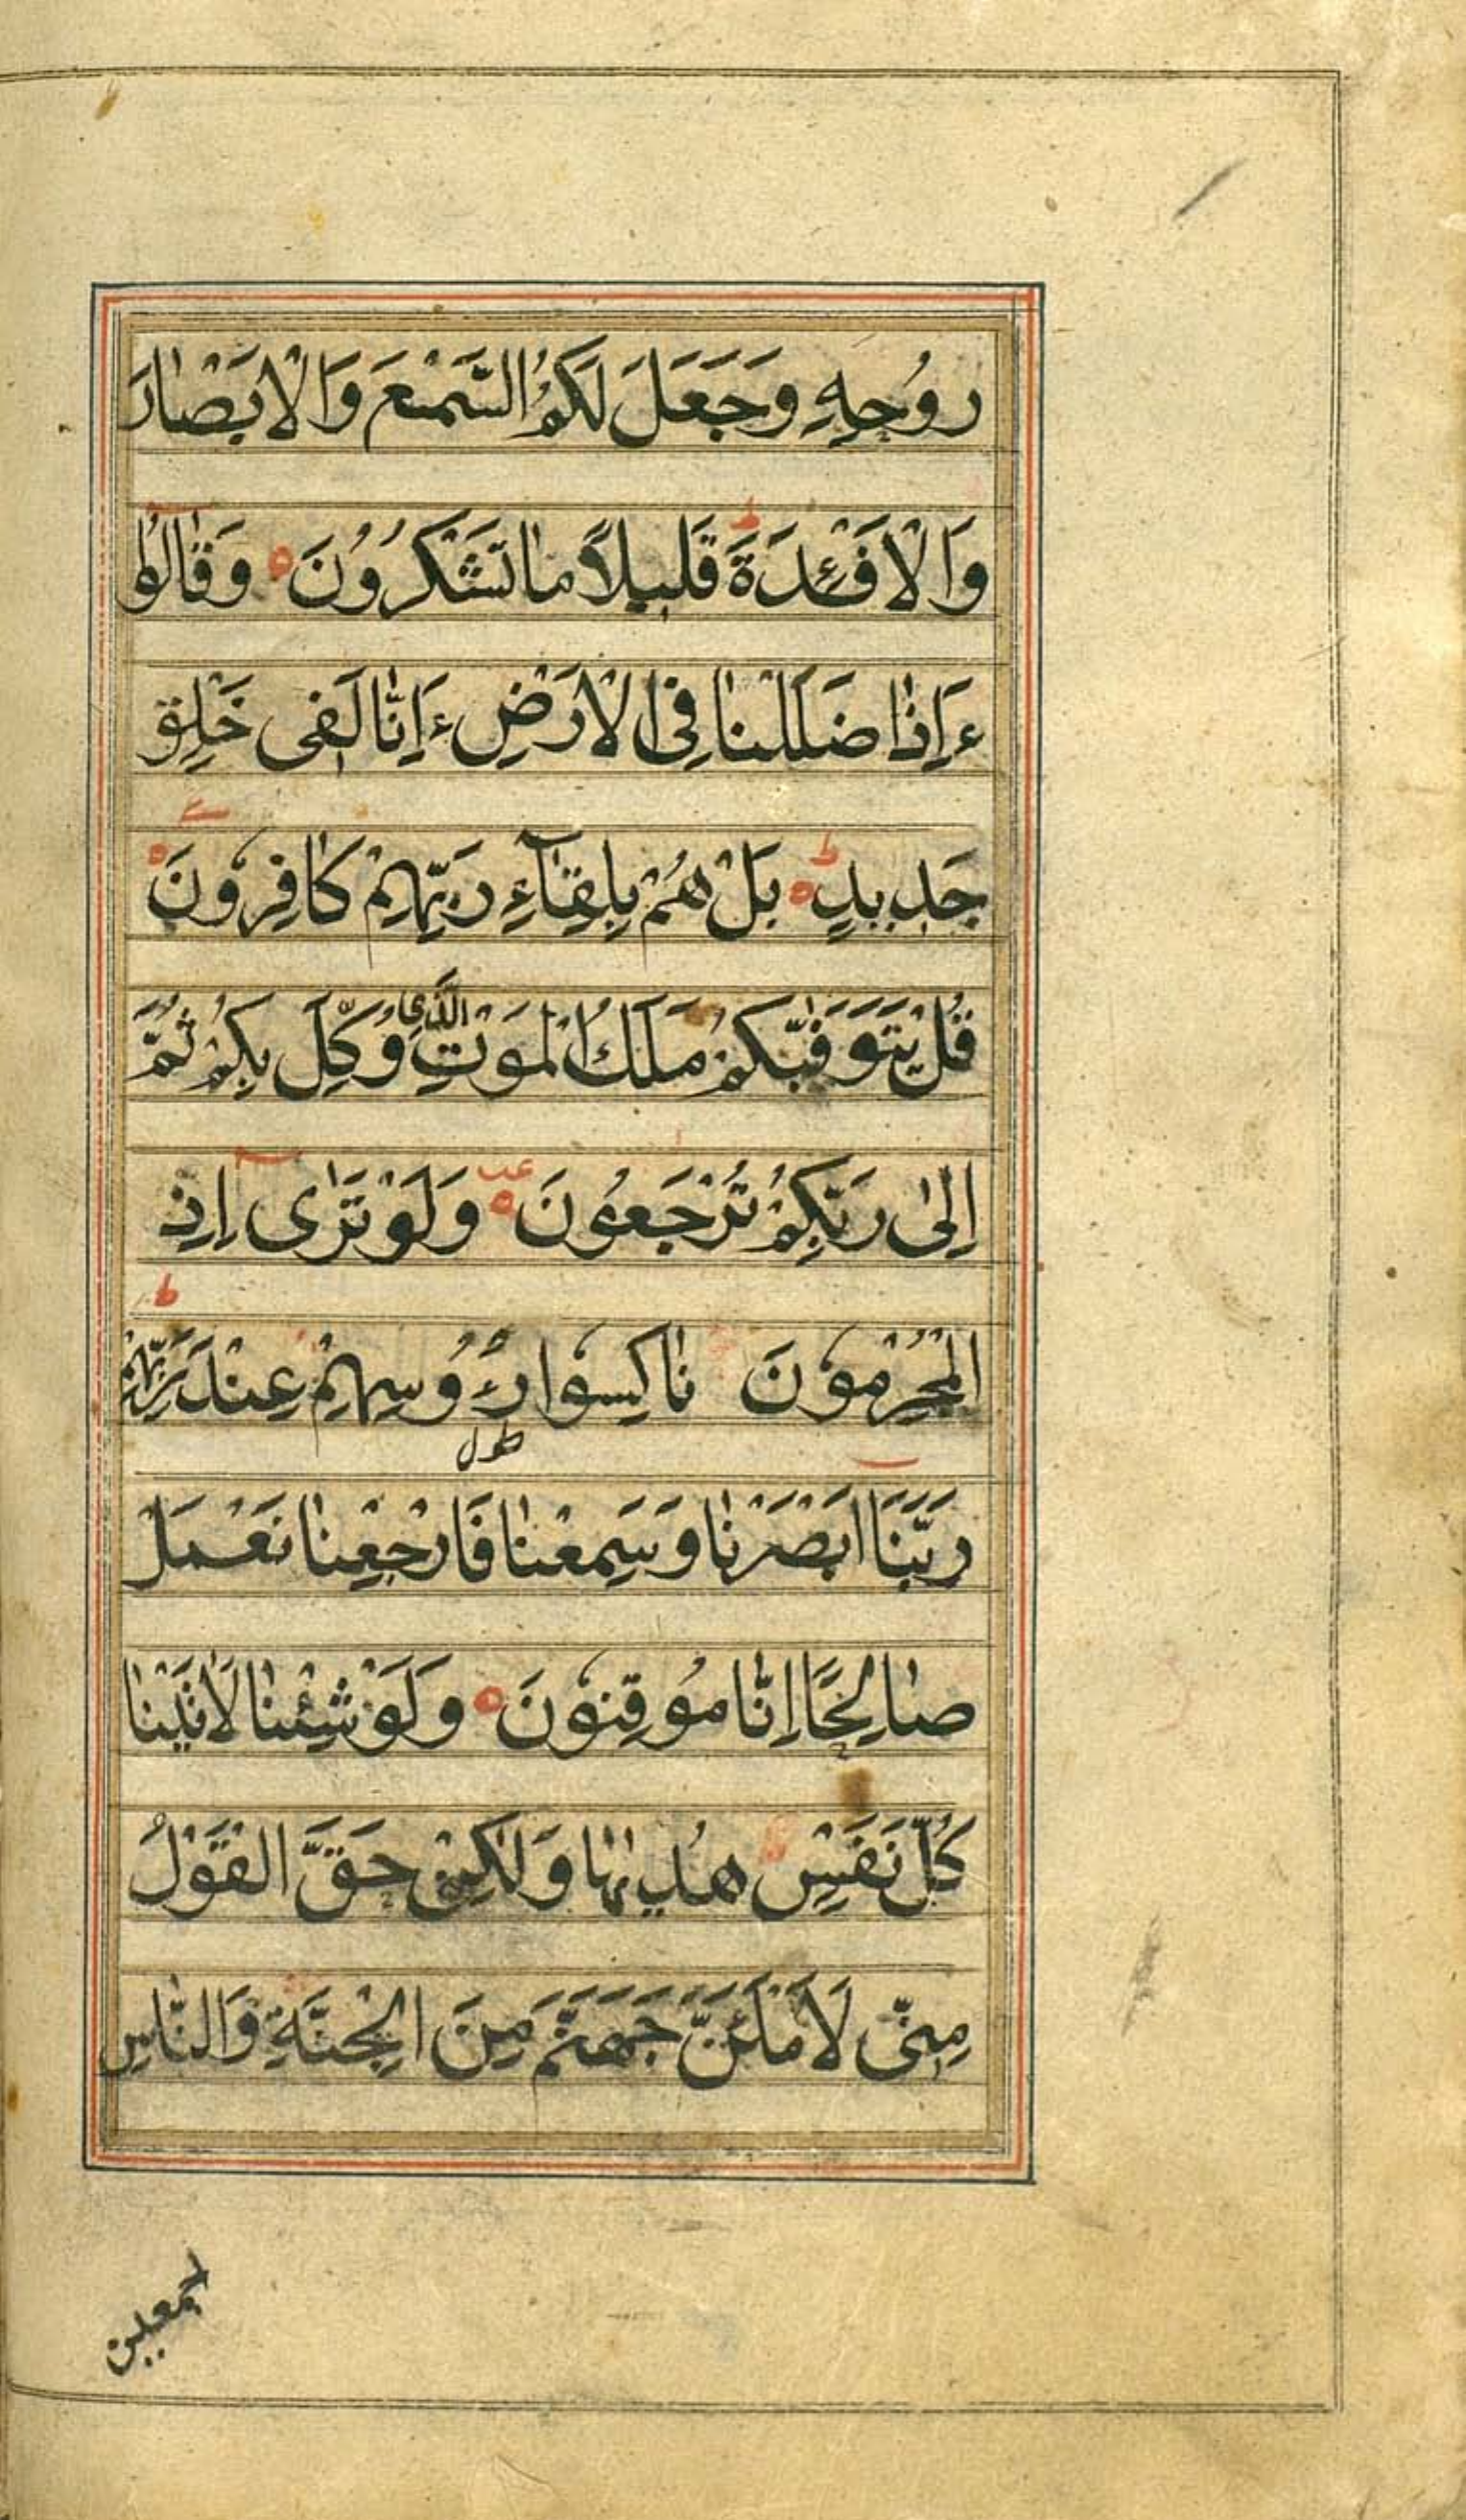 رُوُحِهٖ وَجَعَلَ لَكُمُ السَّمْعَ وَالْاَبْصَارَ
وَالْاَفْئِدَةَ ط قَلِيلاً مَا تَشْكُرُوُنَ ه وَقَالُوا
ءَاِذَا ضَلَلْنَا فِى الْاَرْضِ ءَاِنَّا لَفِى خَلْقٍ
جَدِيدٍ ه ط بَلْ هُمْ بِلِقَآءِ رَبِّهِمْ كَافِرُونَ ه
قُلْ يَتَوَفّٰيكُمْ مَلَكُ الْمَوْتِ الَّذِى وُكِّلَ بِكُمْ ثُمَّ
اِلٰى رَبِّكُمْ تُرْجَعُونَ ه عب وَلَوْ تَرٰى اِذِ
الْمُجْرِمُونَ نَاكِسُوا رُءُوُسِهِمْ عِنْدَ رَبِّهِمْ ط
رَبَّنَا اَبْصَرْنَا وَسَمِعْنَا فَارْجِعْنَا نَعْمَلْ
صَالِحًا اِنَّا مُوقِنُونَ ه وَلَوْ شِئْنَا لَاٰتَيْنَا
كُلَّ نَفْسٍ هُدٰيهَا وَلٰكِنْ حَقَّ الْقَوْلُ
مِنّى لَاَمْلَئَنَّ جَهَنَّمَ مِنَ الْجِنَّةِ وَالنَّاسِ
اجمعين